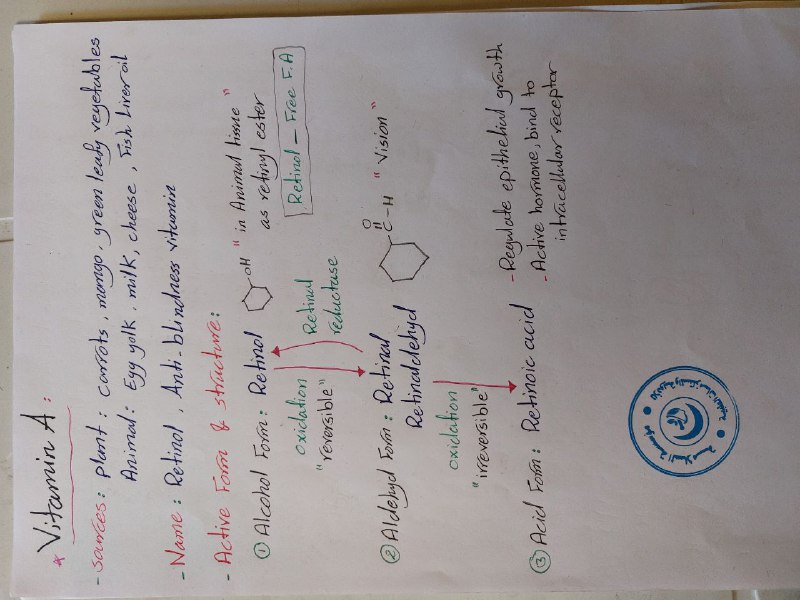 * Vitamin A:
- Sources: plant: carrots, mango, green leafy vegetables
Animal: Egg yolk, milk, cheese, Fish Liver oil
- Name: Retinol, Anti-blindness vitamin
- Active Form & structure:
① Alcohol Form: Retinol
OH
" in Animal tissue "
as retinyl ester
Retinol - Free F.A
oxidation
"reversible"
Retinal
reductase
② Aldehyd Form: Retinal
Retinaldehyd
O
C-H
" Vision "
oxidation
"irreversible"
③ Acid Form: Retinoic acid
- Regulate epithelial growth
- Active hormone, bind to
intracellular receptor